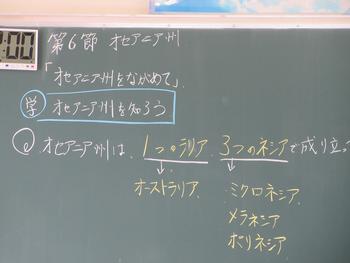 :00
第6節 オセアニア州
「オセアニア州をながめて」
学 オセアニア州を知ろう
Q オセアニア州は、1つのラリア 3つのネシアで成り立っ
↓ ↓
オーストラリア ミクロネシア
メラネシア
ポリネシア